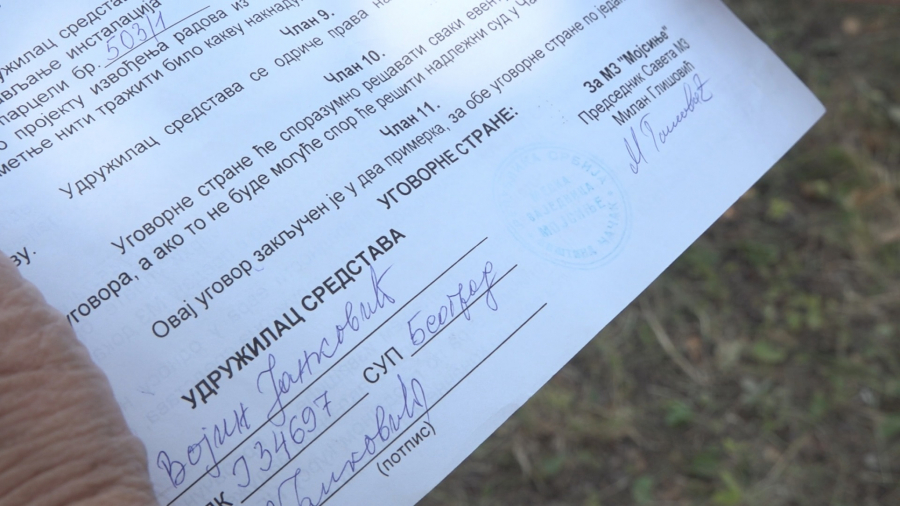 средста
вљање инсталација
парцели бр. 503/1
пројекту извођења радова из
метње нити тражити било какву накнаду
Члан 9.
Удружилац средстава се одриче права на
Члан 10.
Уговорне стране ће споразумно решавати сваки евен
уговора, а ако то не буде могуће спор ће решити надлежни суд у Ча
Члан 11.
Овај уговор закључен је у два примерка, за обе уговорне стране по једа
УГОВОРНЕ СТРАНЕ:
УДРУЖИЛАЦ СРЕДСТАВА
За МЗ "Мојсиње"
Председник Савета МЗ
Милан Глишовић
Војин Јанковић
ЛК 134697 СУП Београд
(потпис)